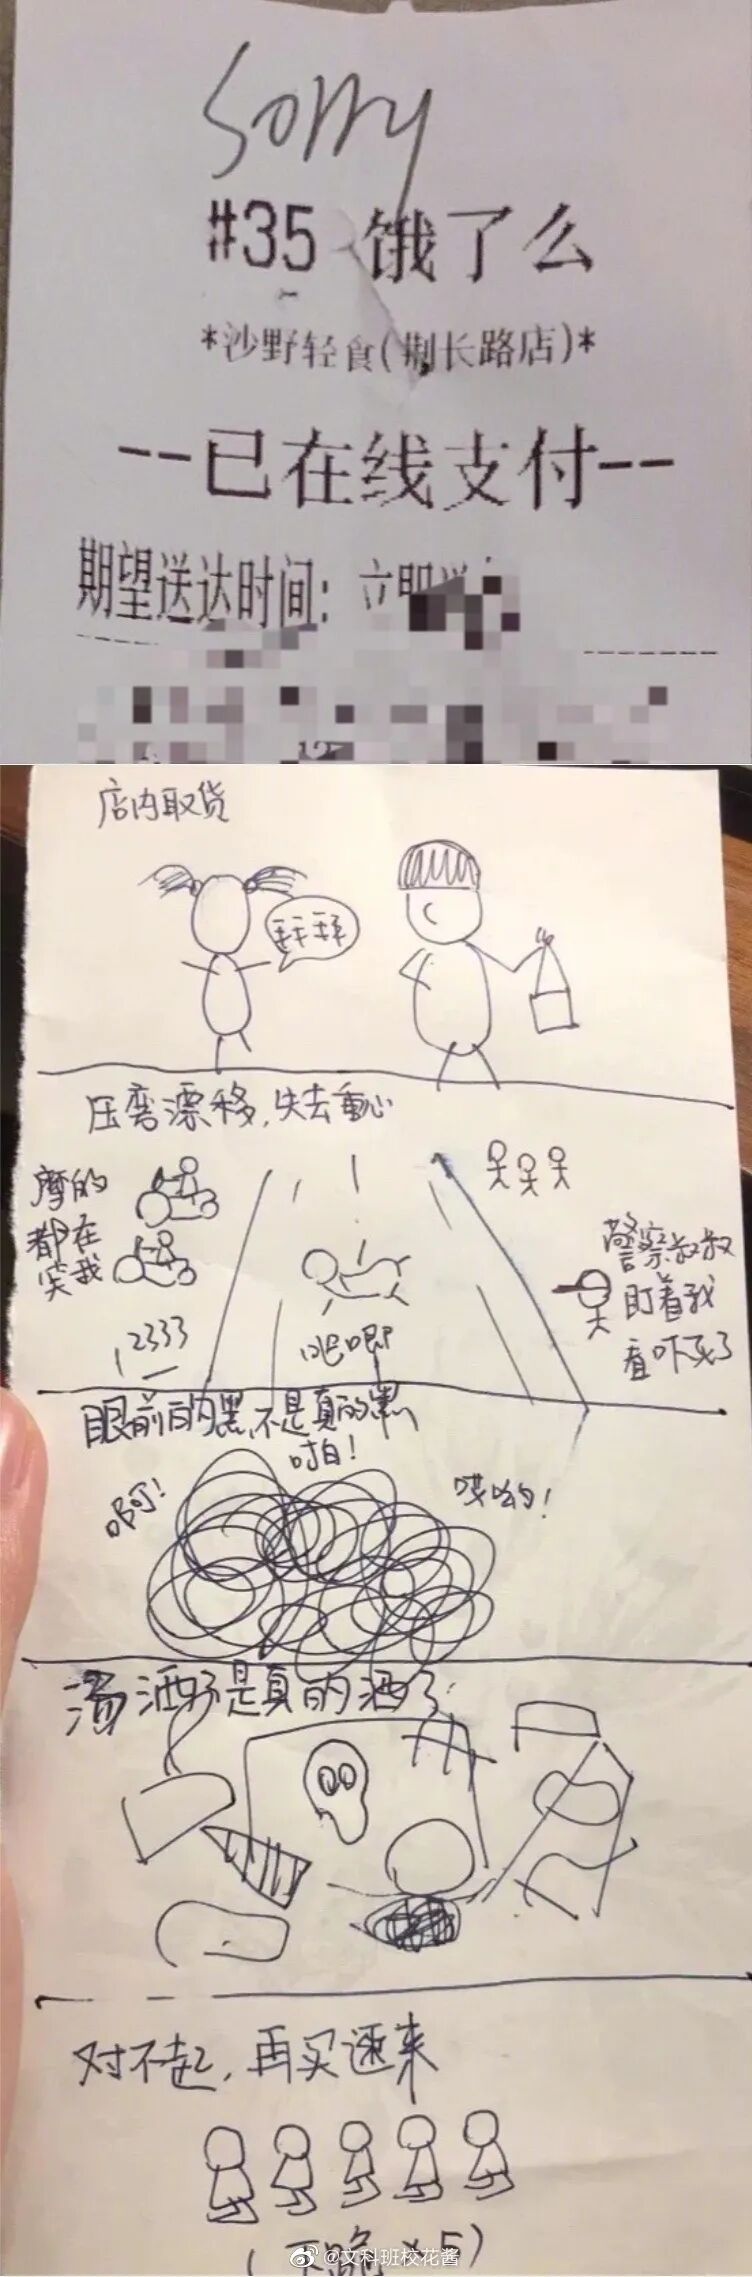 Sorry
#35 饿了么
*沙野轻食(荆长路店)*
--已在线支付--
期望送达时间：立即
店内取货
拜拜
压弯漂移，失去重心
摩的
都在
笑我
12333
吧唧
警察叔叔
盯着我
看吓死了
眼前的黑，不是真的黑
啊！
啪！
哎哟！
汤洒了是真的洒了
对不起，再买速来
(下跪×5)
@文科班校花酱